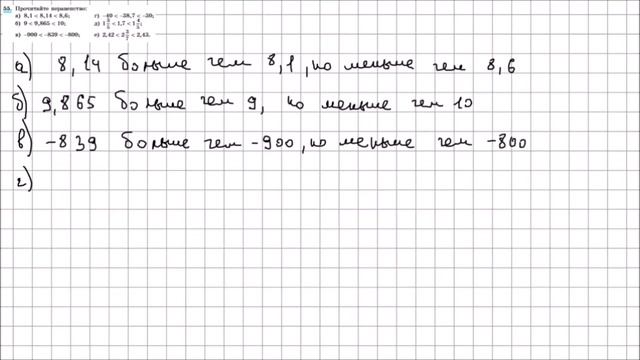 55. Прочитайте неравенство:
а) 8,1 < 8,14 < 8,6; г) −40 < −38,7 < −30;
б) 9 < 9,865 < 10; д) < 1,7 <
в) −900 < −839 < −800; е) 2,42 < 2 3/7 < 2,43.
а) 8,14 больше чем 8,1, но меньше чем 8,6
б) 9,865 больше чем 9, но меньше чем 10
в) −839 больше чем −900, но меньше чем −800
г)